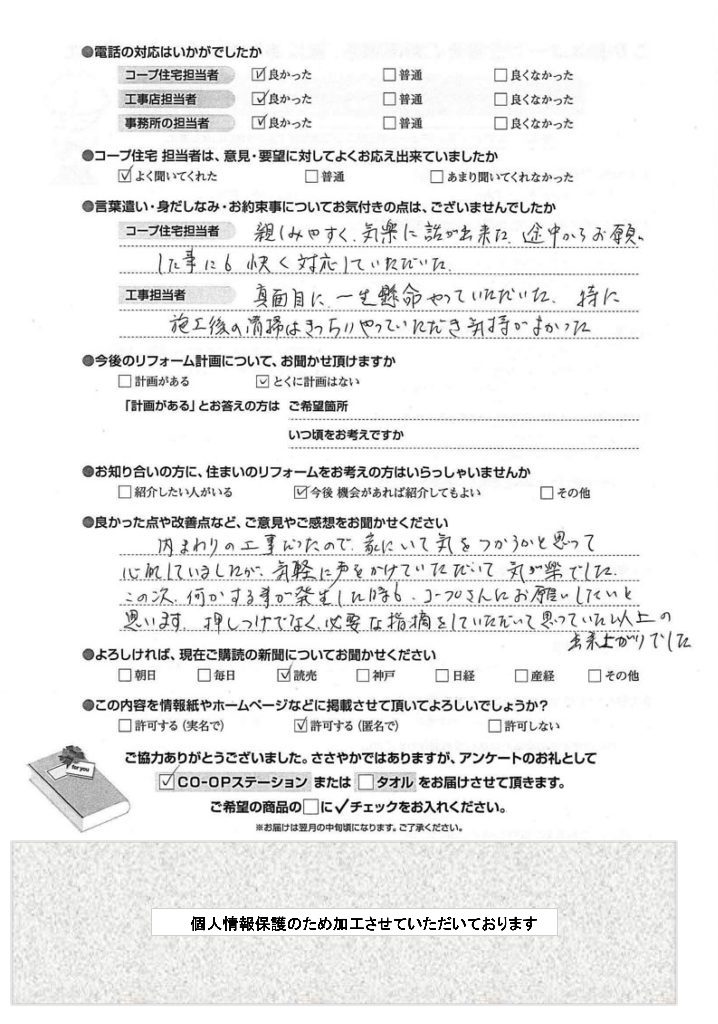 ●電話の対応はいかがでしたか
コープ住宅担当者 ☑良かった □普通 □良くなかった
工事店担当者 ☑良かった □普通 □良くなかった
事務所の担当者 ☑良かった □普通 □良くなかった
●コープ住宅 担当者は、意見・要望に対してよくお応え出来ていましたか
☑よく聞いてくれた □普通 □あまり聞いてくれなかった
●言葉遣い・身だしなみ・お約束事についてお気付きの点は、ございませんでしたか
コープ住宅担当者 親しみやすく、気楽に話が出来た。途中からお願い
した事にも快く対応していただいた。
工事担当者 真面目に、一生懸命やっていただいた。特に
施工後の清掃はきっちりやっていただき気持がよかった
●今後のリフォーム計画について、お聞かせ頂けますか
□計画がある ☑とくに計画はない
「計画がある」とお答えの方は ご希望箇所
いつ頃をお考えですか
●お知り合いの方に、住まいのリフォームをお考えの方はいらっしゃいませんか
□紹介したい人がいる ☑今後 機会があれば紹介してもよい □その他
●良かった点や改善点など、ご意見やご感想をお聞かせください
内まわりの工事だったので、家にいて気をつかうかと思って
心配していましたが、気軽に声をかけていただいて気が楽でした。
この次、何かする事が発生した時も、コープさんにお願いしたいと
思います。押しつけでなく、必要な指摘をしていただいて思っていた以上の
出来上がりでした
●よろしければ、現在ご購読の新聞についてお聞かせください
□朝日 □毎日 ☑読売 □神戸 □日経 □産経 □その他
●この内容を情報紙やホームページなどに掲載させて頂いてよろしいでしょうか?
□許可する(実名で) ☑許可する(匿名で) □許可しない
ご協力ありがとうございました。ささやかではありますが、アンケートのお礼として
☑CO-OPステーション または □タオル をお届けさせて頂きます。
for you
ご希望の商品の□に✓チェックをお入れください。
※お届けは翌月の中旬頃になります。ご了承ください。
個人情報保護のため加工させていただいております